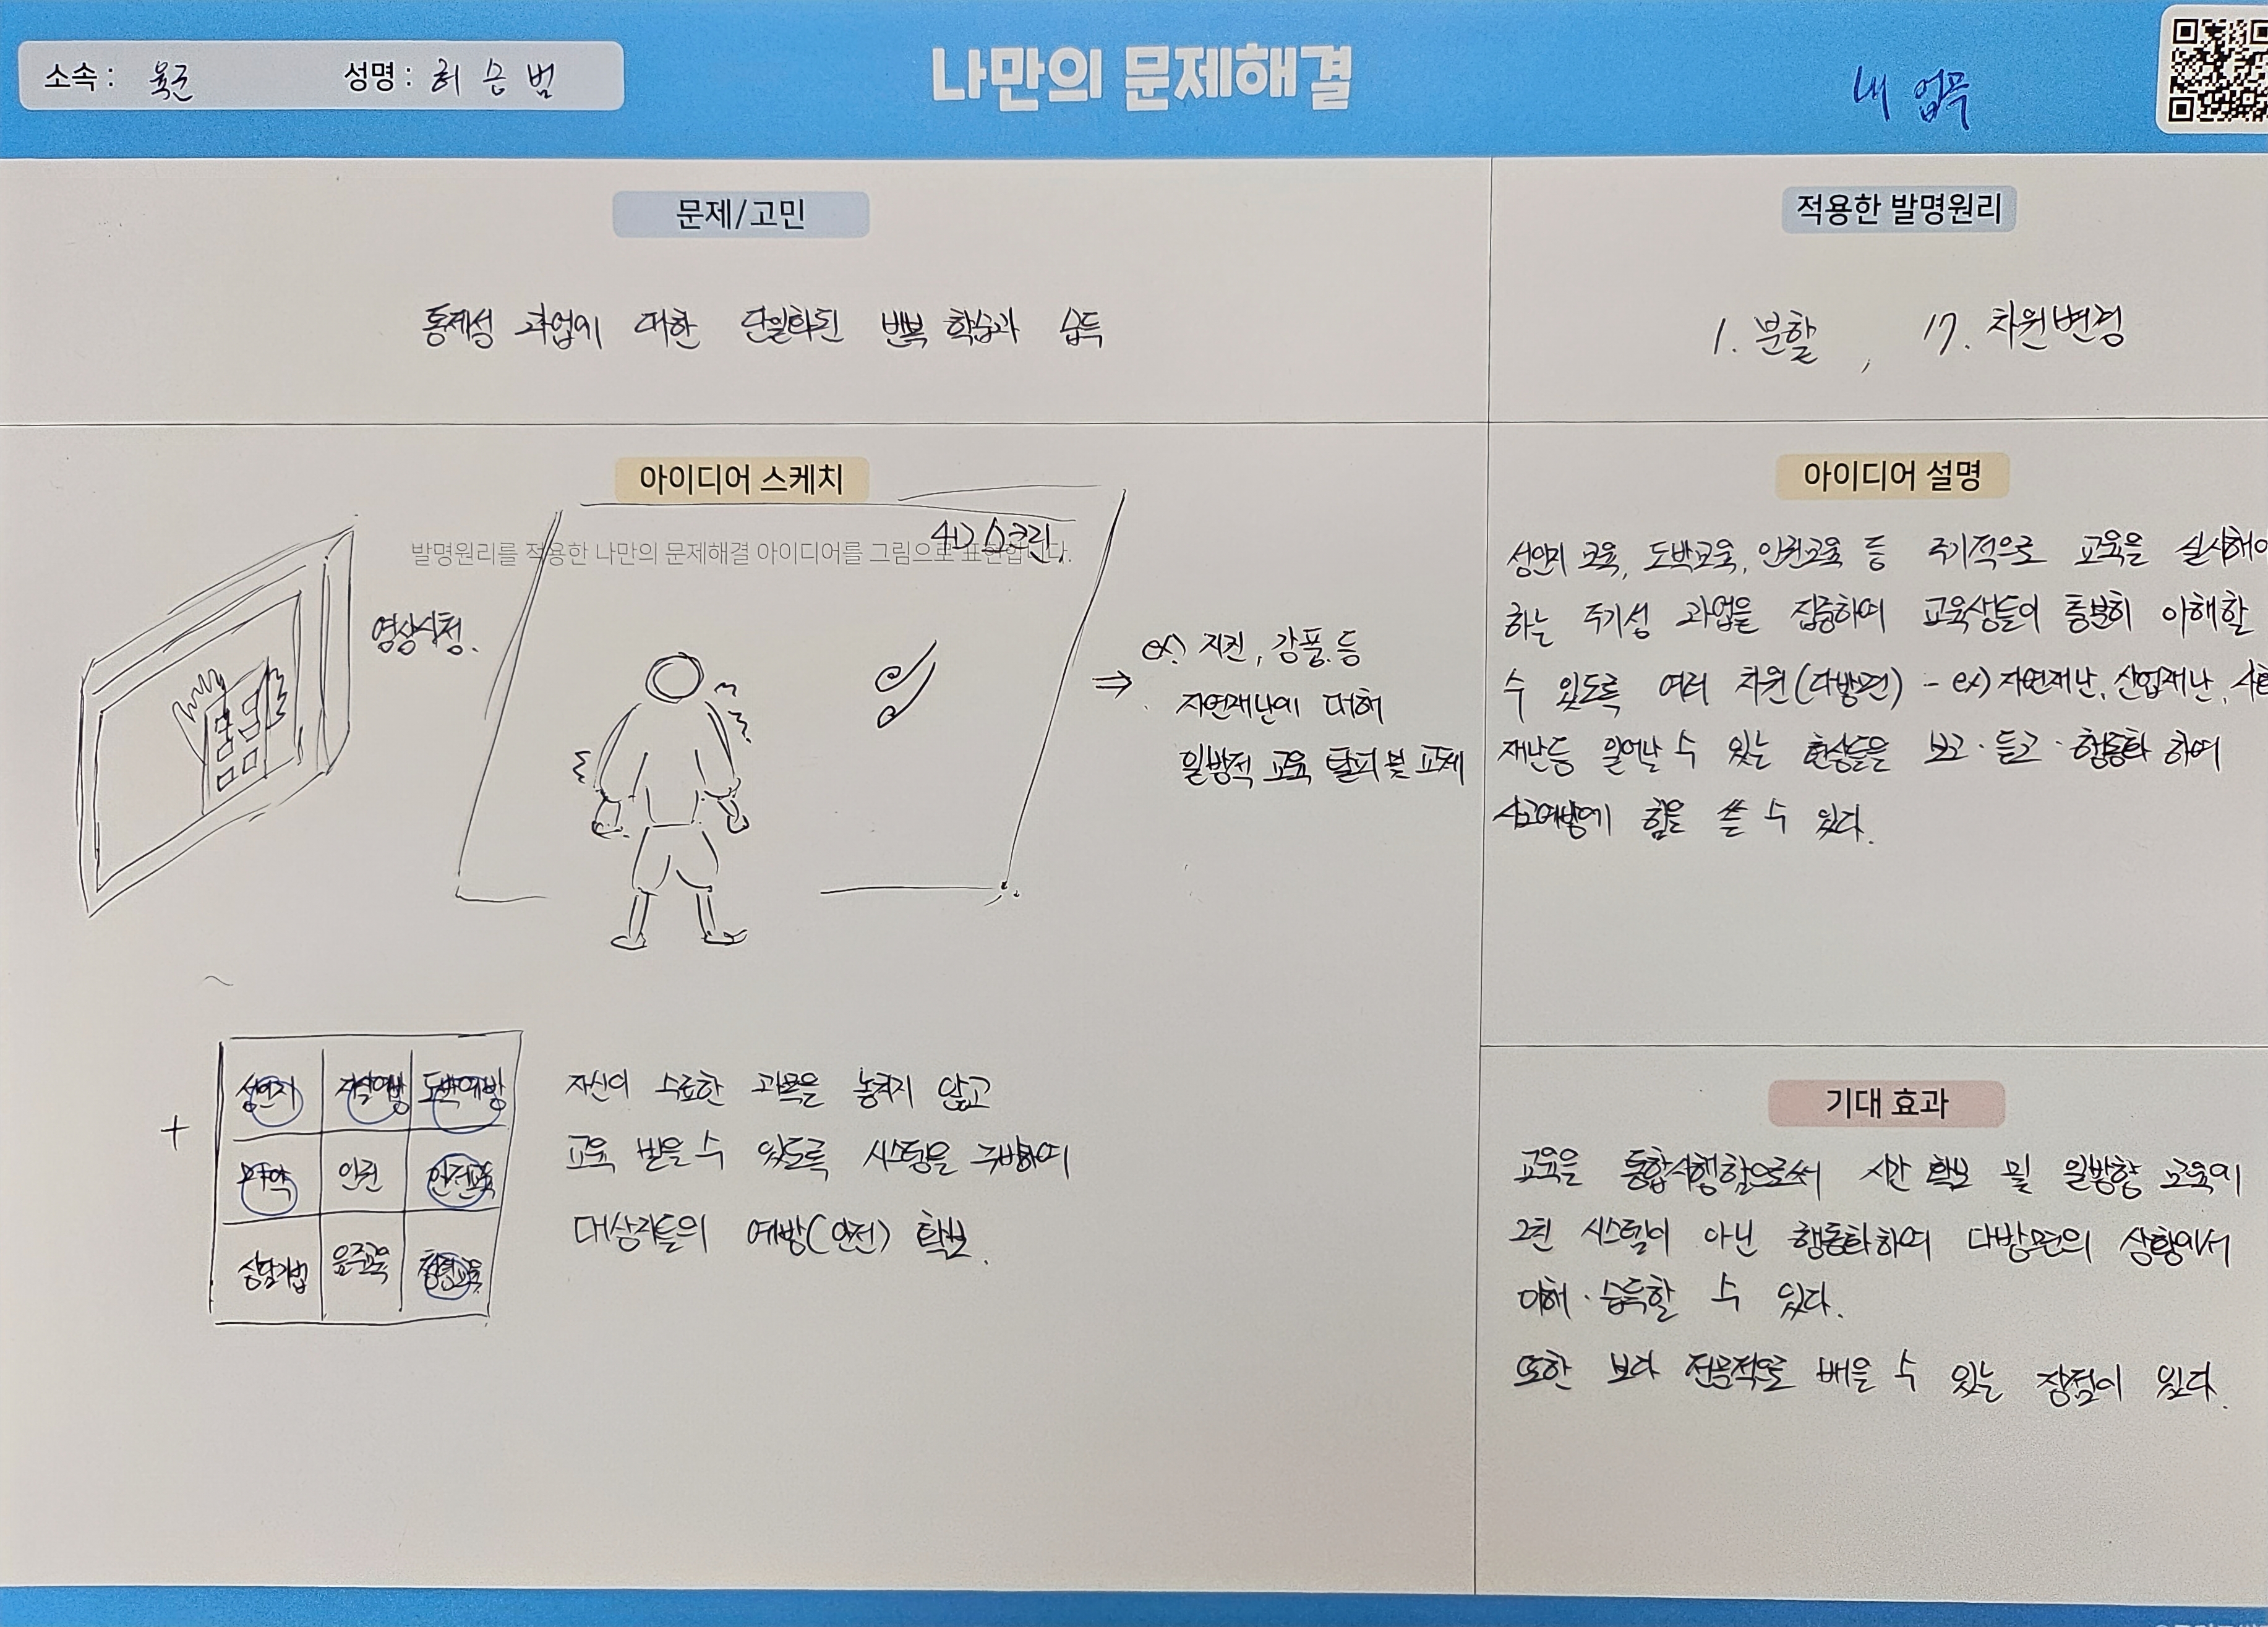 소속 : 육군 성명 : 허승범
나만의 문제해결
내 업무
문제/고민
통제성 과업에 대한 단일화된 반복 학습과 습득
적용한 발명원리
1. 분할 , 17. 차원변경
아이디어 스케치
발명원리를 적용한 나만의 문제해결 아이디어를 그림으로 표현합니다.
4D 스크린
영상시청.
⇒ ex) 지진, 강풍 등
자연재난에 대해
일방적 교육 탈피 및
+
성인지 자살예방 도박예방
마약 인권 안전교육
상담기법 음주교육 청렴교육
자신이 수료한 과목을 놓치지 않고
교육 받을 수 있도록 시스템을 구비하여
대상자들의 예방(안전) 확보.
아이디어 설명
성인지 교육, 도박교육, 인권교육 등 주기적으로 교육을 실시해야
하는 주기성 과업을 집중하여 교육생들이 충분히 이해할
수 있도록 여러 차원(다방면) - ex) 자연재난, 산업재난,
재난등 일어날 수 있는 현상들을 보고·듣고·행동화 하여
사고예방에 힘을 쓸 수 있다.
기대 효과
교육을 통합시행함으로써 시간 확보 및 일방향 교육이
그친 시스템이 아닌 행동화하여 다방면의 상황에서
이해·습득할 수 있다.
또한 보다 전문적으로 배울 수 있는 장점이 있다.